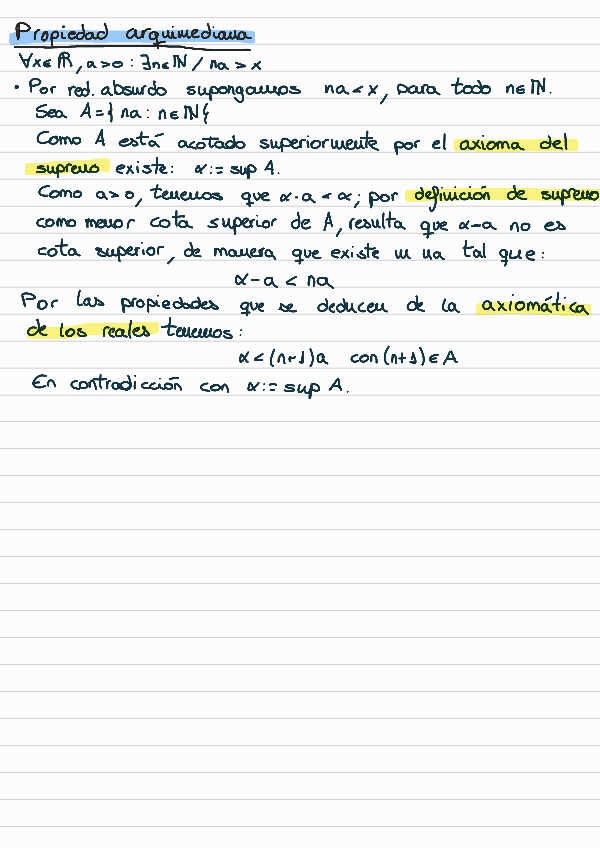 Propiedad arquimediana
∀x∈ℝ, a>0 : ∃n∈ℕ / na > x
• Por red. absurdo supongamos na < x, para todo n∈ℕ.
Sea A = { na : n∈ℕ {
Como A está acotado superiormente por el axioma del
supremo existe: α := sup A.
Como a>0, tenemos que α·a < α; por definición de supremo
como menor cota superior de A, resulta que α-a no es
cota superior, de manera que existe un na tal que:
α-a < na
Por las propiedades que se deducen de la axiomática
de los reales tenemos:
α < (n+1)a con (n+1) ∈ A
En contradicción con α := sup A.